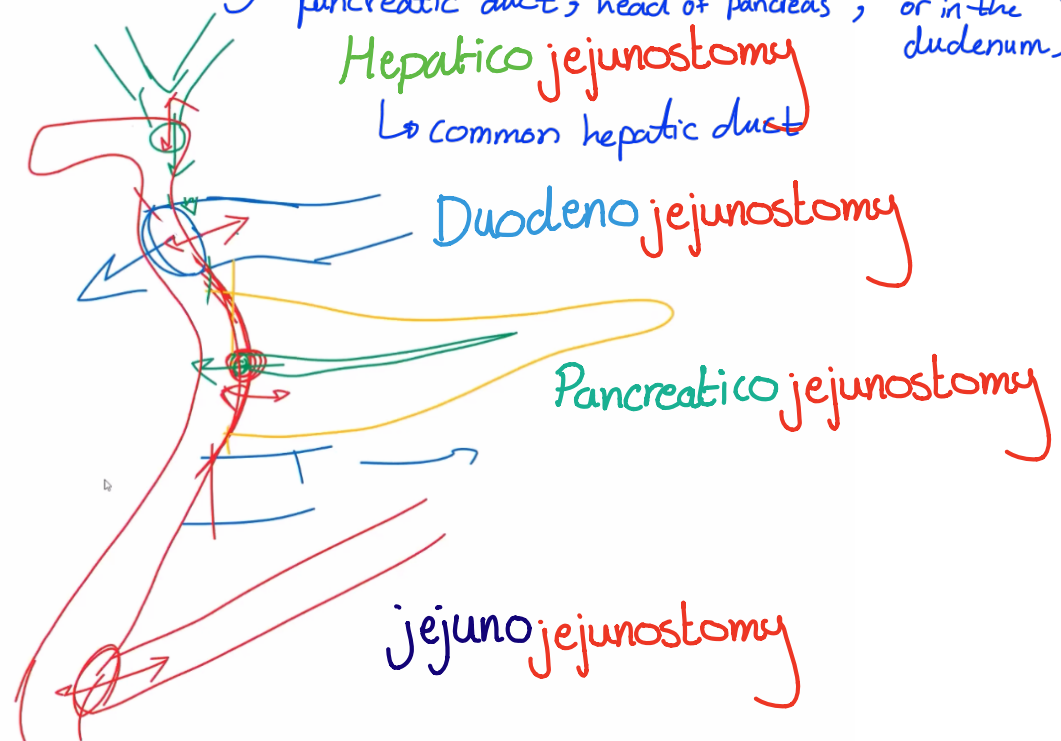 pancreatic duct, head of pancreas, or in the
dudenum.
Hepatico jejunostomy
↳ common hepatic duct
Duodeno jejunostomy
Pancreatico jejunostomy
jejuno jejunostomy